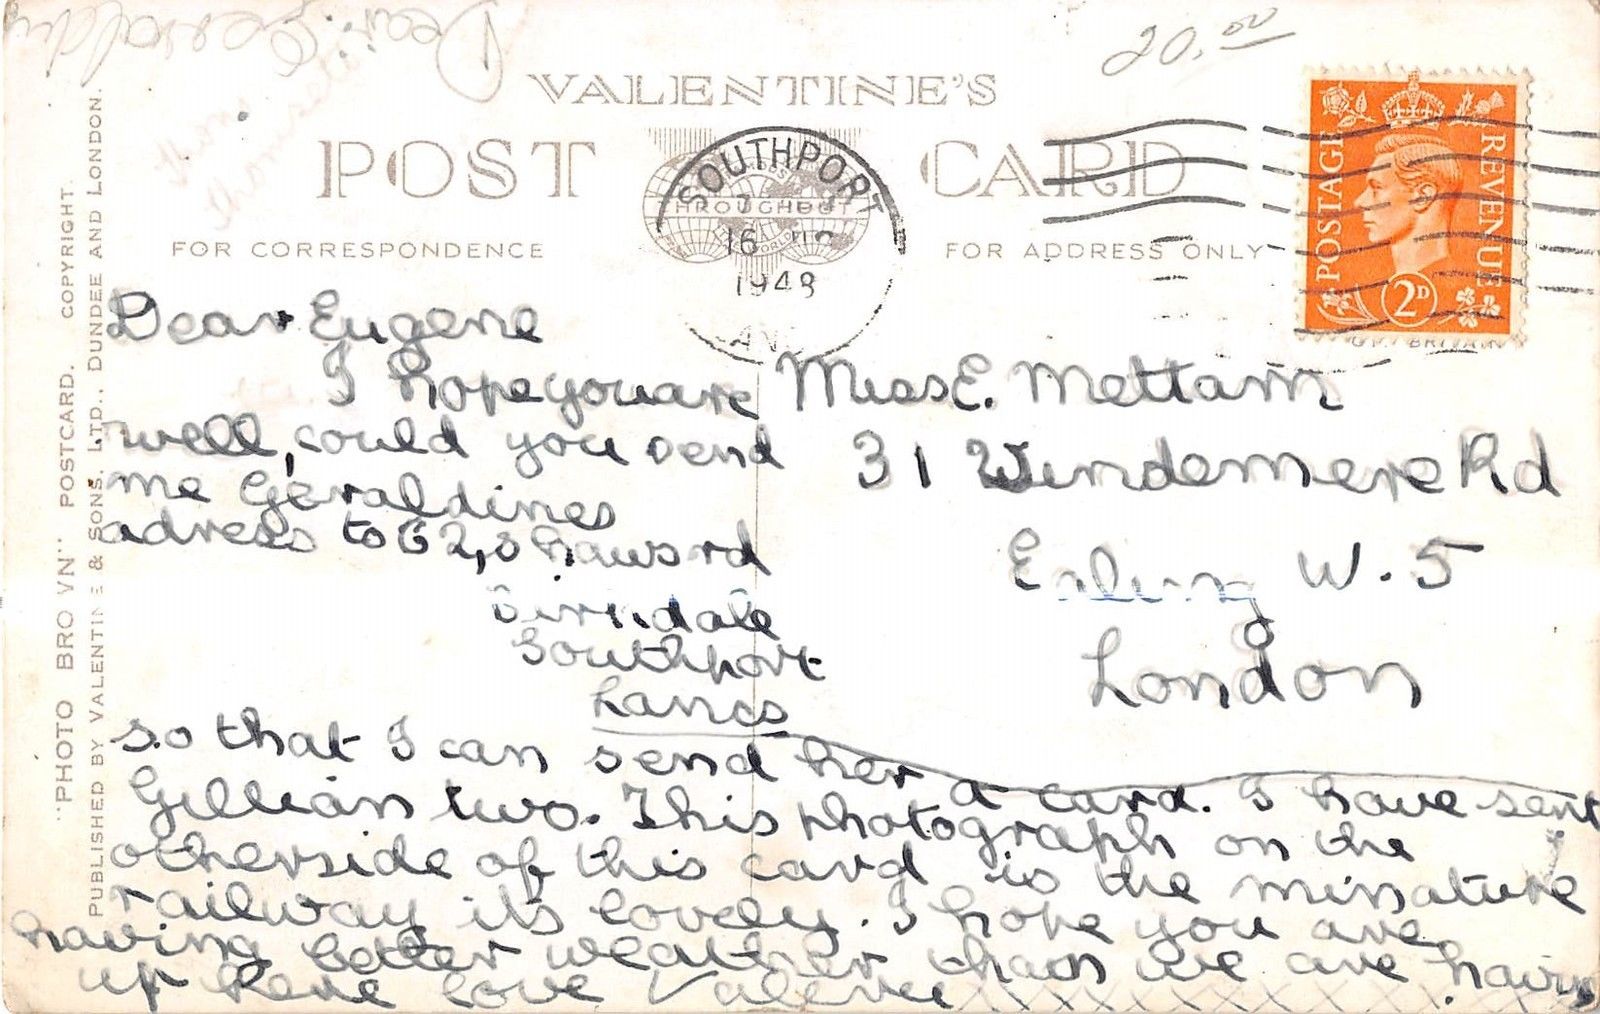 20.00
VALENTINE'S
POST CARD
FOR CORRESPONDENCE
FOR ADDRESS ONLY
SOUTHPORT
16
1948
POSTAGE REVENUE
2D
"PHOTO BROWN" POSTCARD. COPYRIGHT.
PUBLISHED BY VALENTINE & SONS. LTD., DUNDEE AND LONDON.
Dear Eugene
I hope you are
well, could you send
me Geraldines
adress to 62, Shaws rd
Birkdale
Southport
Lancs
so that I can send her a card. I have sent
Gillian two. This photograph on the
otherside of this card is the minature
railway its lovely. I hope you are
having better weather than we are having
up here love Valerie xxxxxxxxxxxx
Miss E. Mettam
31 Windemere Rd
Ealing W.5
London